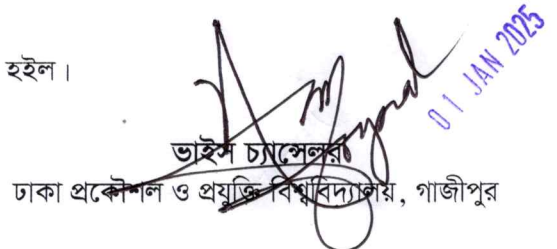 হইল।
01 JAN 2025
ভাইস চ্যান্সেলর
ঢাকা প্রকৌশল ও প্রযুক্তি বিশ্ববিদ্যালয়, গাজীপুর